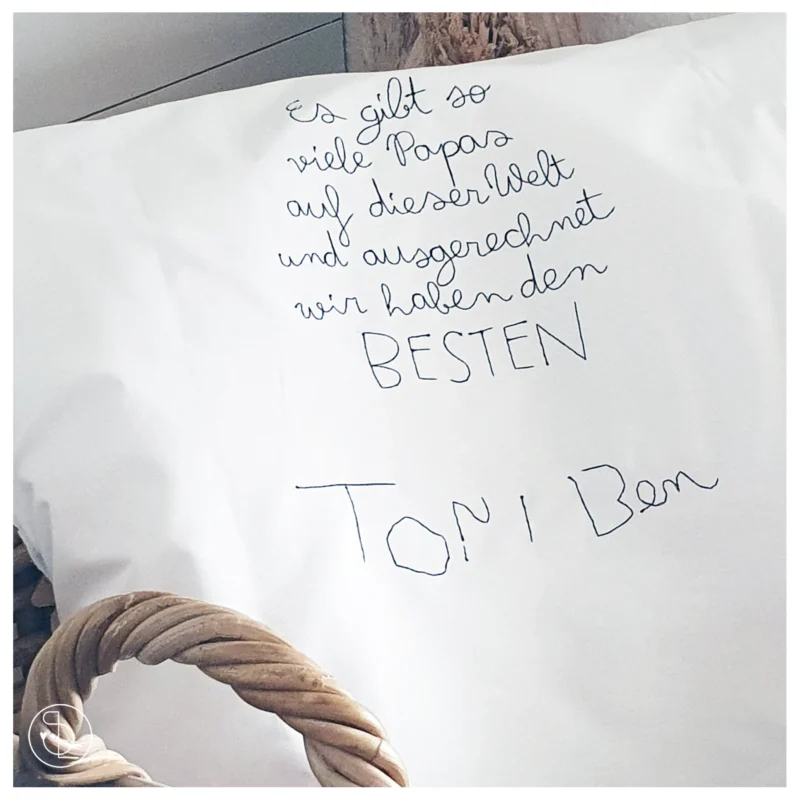 Es gibt so
viele Papas
auf dieser Welt
und ausgerechnet
wir haben den
BESTEN
TONI Ben